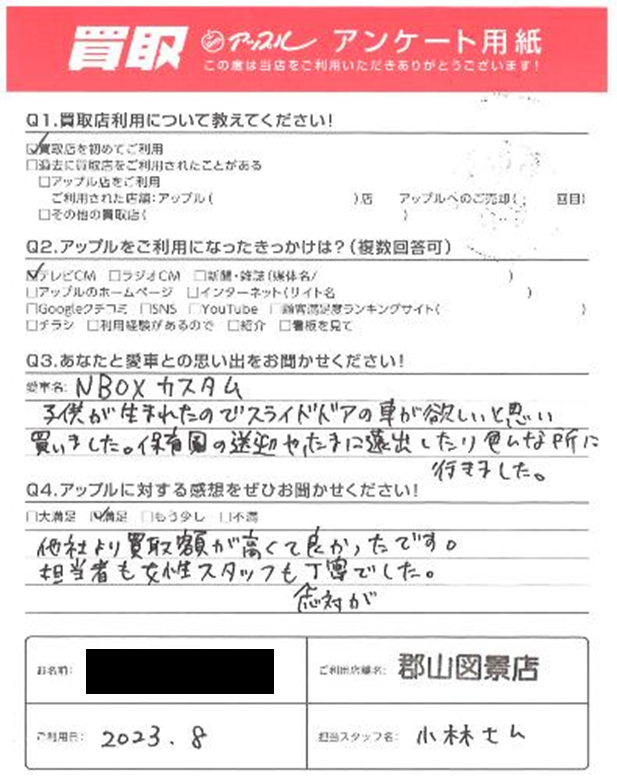 買取 アップル アンケート用紙
この度は当店をご利用いただきありがとうございます!
Q1.買取店利用について教えてください!
☑買取店を初めてご利用
□過去に買取店をご利用されたことがある
□アップル店をご利用
ご利用された店舗:アップル( )店 アップルへのご売却( 回目)
□その他の買取店( )
Q2.アップルをご利用になったきっかけは?(複数回答可)
☑テレビCM □ラジオCM □新聞・雑誌(媒体名/ )
□アップルのホームページ □インターネット(サイト名 )
□Googleクチコミ □SNS □YouTube □顧客満足度ランキングサイト( )
□チラシ □利用経験があるので □紹介 □看板を見て
Q3.あなたと愛車との思い出をお聞かせください!
愛車名: NBOXカスタム
子供が生まれたのでスライドドアの車が欲しいと思い
買いました。保育園の送迎や、たまに遠出したり色んな所に
行きました。
Q4.アップルに対する感想をぜひお聞かせください!
□大満足 ☑満足 □もう少し □不満
他社より買取額が高くて良かったです。
担当者も女性スタッフも丁寧でした。
応対が
お名前: ご利用店舗名: 郡山図景店
ご利用日: 2023.8 担当スタッフ名: 小林さん